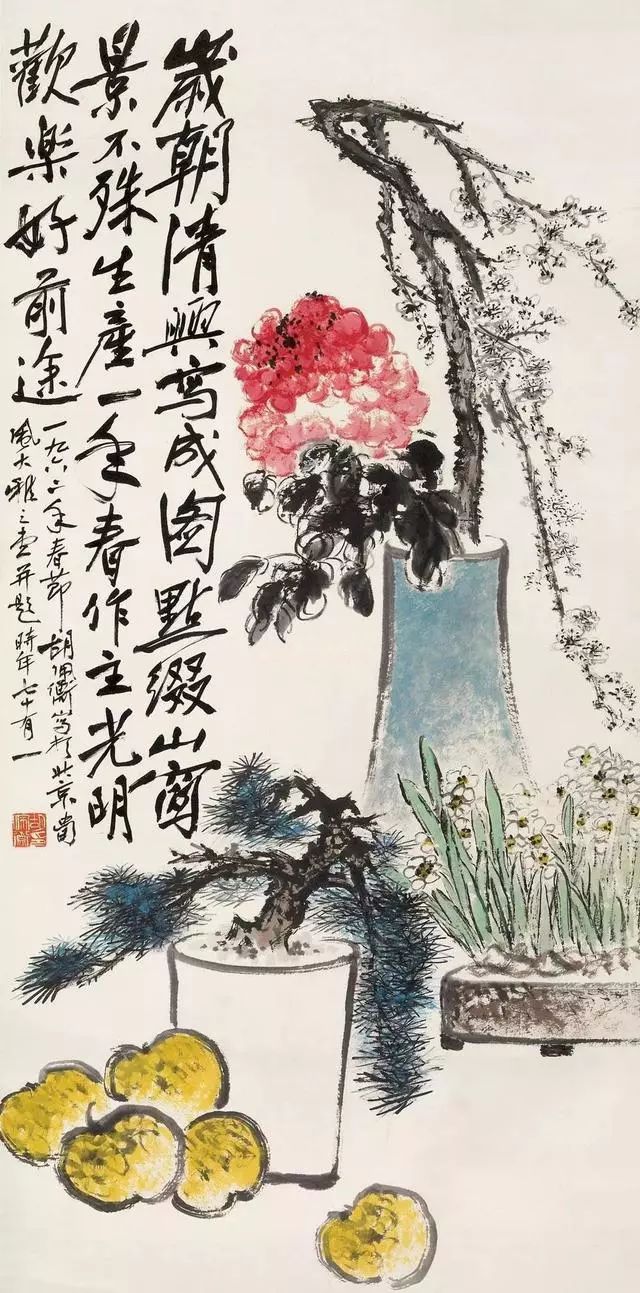 歲朝清興寫成圖點綴山窗
景不殊生產一年春作主光明
歡樂好前途
一九六二年春節胡佩衡寫於北京
風大雅之堂并題時年七十有一